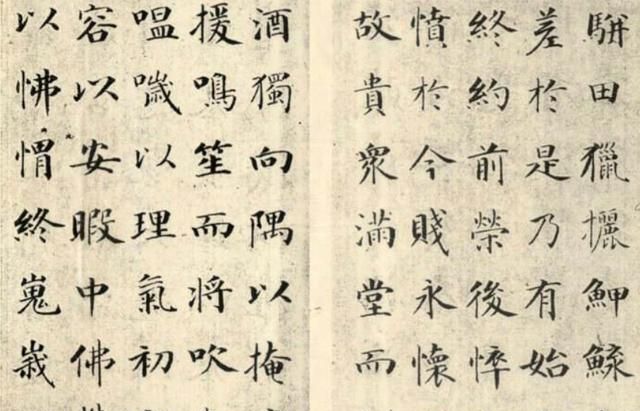 駢田獵攦魻鰈
差於是乃有始
終約前榮後悴
憤於今賤永懷
故貴衆滿堂而
酒獨向隅以掩
援鳴笙而將吹
嗢噦以理氣初
容以安暇中佛
以怫㥜終嵬峩